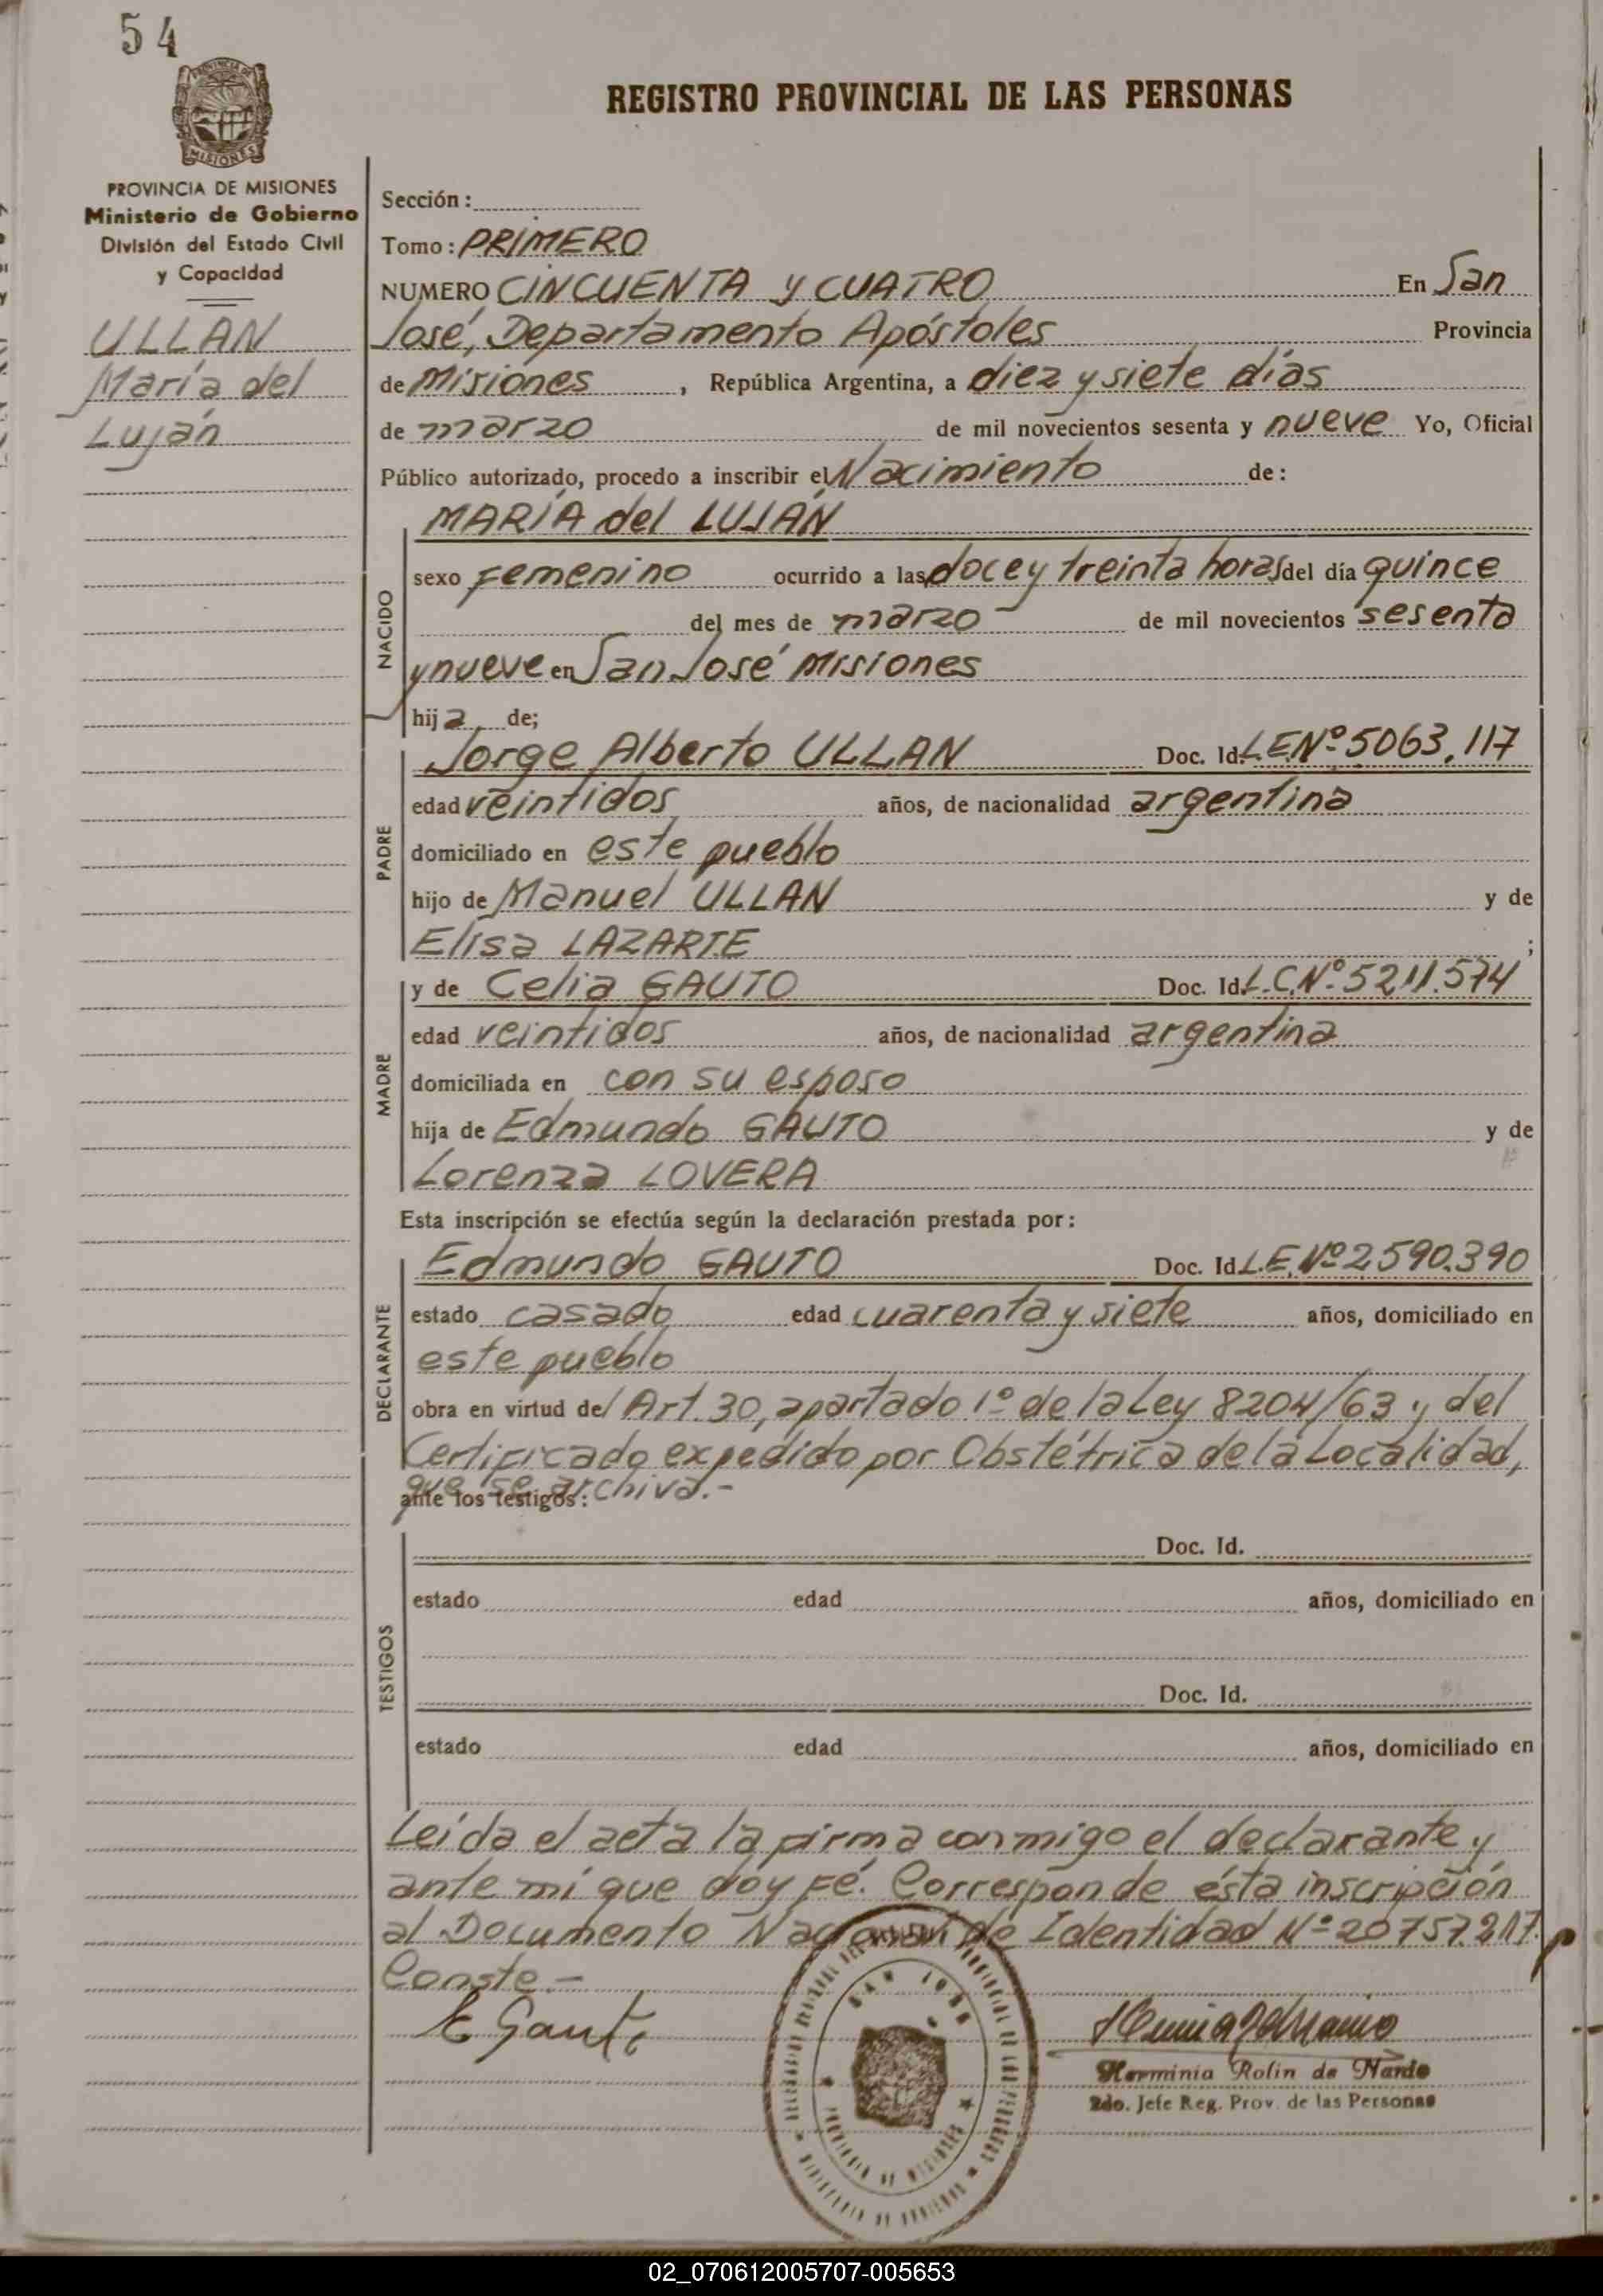 54
PROVINCIA DE MISIONES
Ministerio de Gobierno
División del Estado Civil
y Capacidad
ULLAN
María del
Luján
REGISTRO PROVINCIAL DE LAS PERSONAS
Sección:
Tomo: PRIMERO
NUMERO CINCUENTA y CUATRO En San
José, Departamento Apóstoles Provincia
de Misiones, República Argentina, a diez y siete días
de marzo de mil novecientos sesenta y nueve Yo, Oficial
Público autorizado, procedo a inscribir el Nacimiento de:
MARÍA del LUJÁN
NACIDO
sexo femenino ocurrido a las doce y treinta horas del día quince
del mes de marzo de mil novecientos sesenta
y nueve en San José Misiones
hija de;
PADRE
Jorge Alberto ULLAN Doc. Id. L.E.Nº 5063.117
edad veintidos años, de nacionalidad argentina
domiciliado en este pueblo
hijo de Manuel ULLAN y de
Elisa LAZARTE ;
MADRE
y de Celia GAUTO Doc. Id. L.C.Nº 5211.574
edad veintidos años, de nacionalidad argentina
domiciliada en con su esposo
hija de Edmundo GAUTO y de
Lorenza LOVERA
Esta inscripción se efectúa según la declaración prestada por:
DECLARANTE
Edmundo GAUTO Doc. Id. L.E.Nº 2.590.390
estado casado edad cuarenta y siete años, domiciliado en
este pueblo
obra en virtud del Art. 30, apartado 1º de la Ley 8204/63 y del
Certificado expedido por Obstétrica de la Localidad,
que se archiva.-
ante los testigos:
TESTIGOS
Doc. Id.
estado edad años, domiciliado en
Doc. Id.
estado edad años, domiciliado en
Leída el acta la firma conmigo el declarante y
ante mí que doy fé. Corresponde ésta inscripción
al Documento Nacional de Identidad Nº 20757.217.
Conste.-
E Gauto
Herminia Rolin de Nardo
2do. Jefe Reg. Prov. de las Personas
SAN JOSE
PROVINCIA DE MISIONES
MINISTERIO DE GOBIERNO
02_070612005707-005653